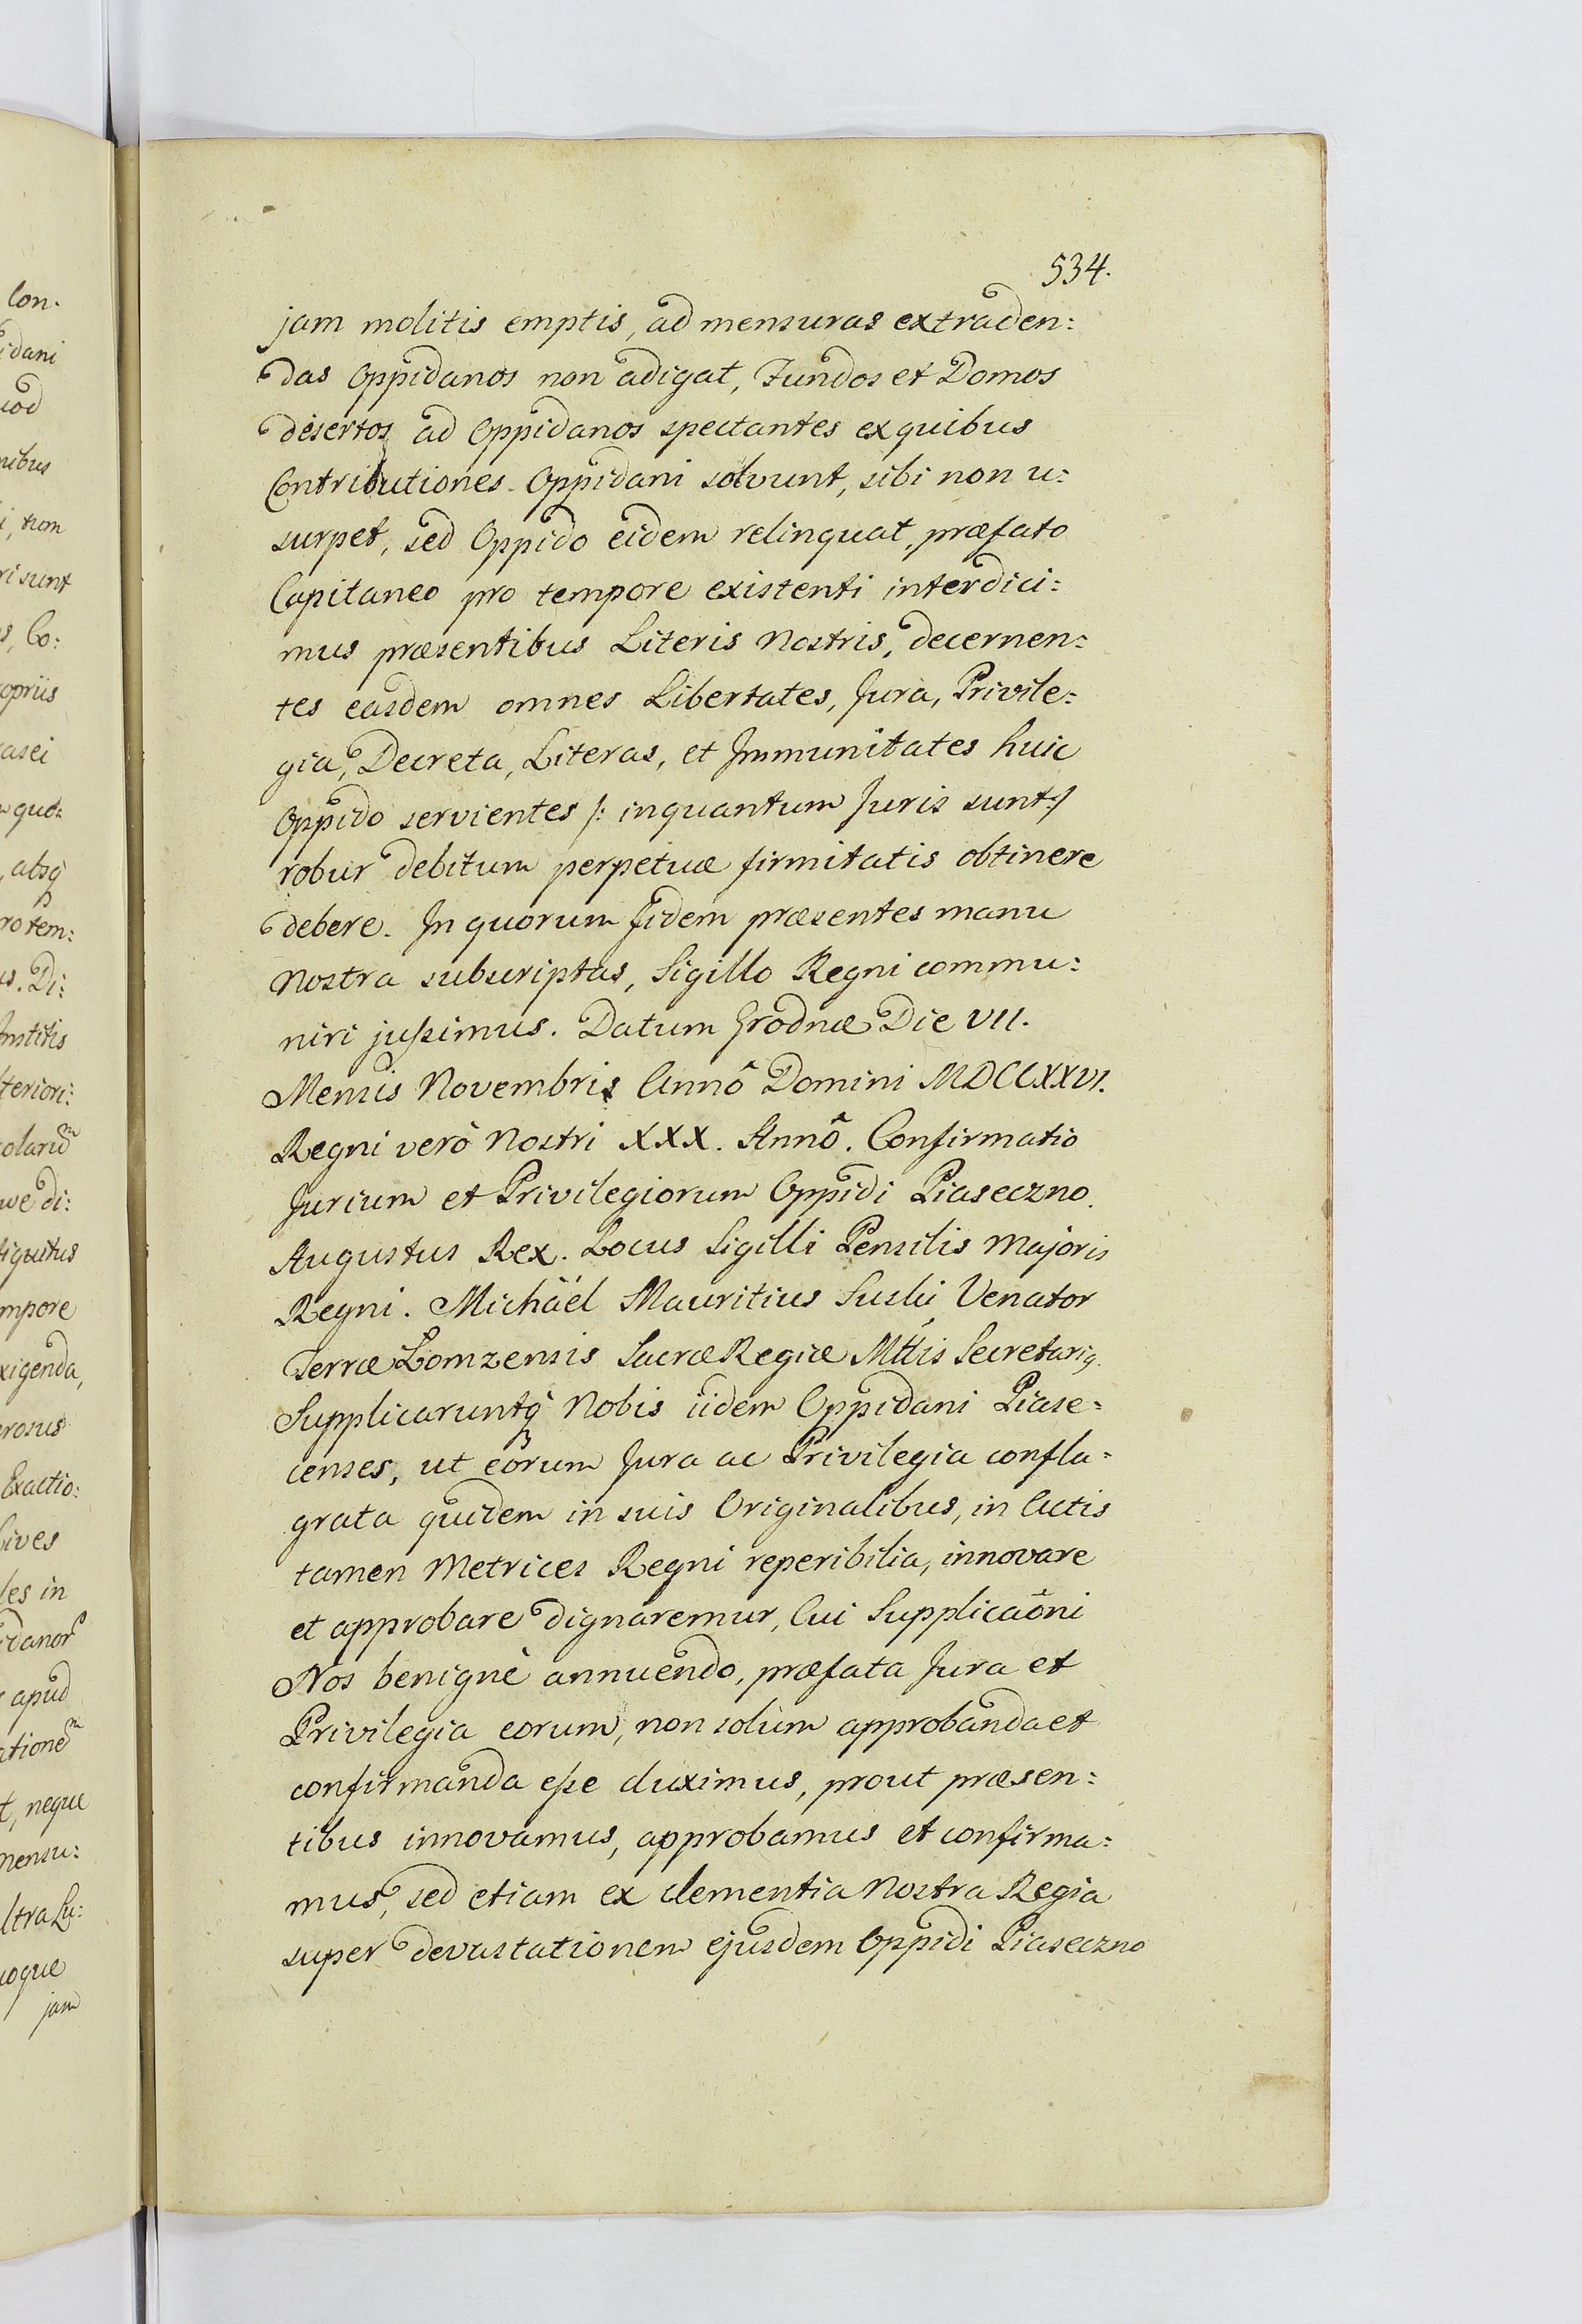 534.
jam molitis emptis, ad mensuras extraden:
das Oppidanos non adigat, Fundos et Domos
desertos ad Oppidanos spectantes ex quibus
Contributiones Oppidani solvunt, sibi non u:
surpet, sed Oppido eidem relinquat, præfato
Capitaneo pro tempore existenti interdici:
mus præsentibus Literis Nostris, decernen:
tes easdem omnes Libertates, Jura, Privile:
gia, Decreta, Literas, et Immunitates huic
Oppido servientes /: inquantum Juris sunt :/
robur debitum perpetuæ firmitatis obtinere
debere. In quorum fidem præsentes manu
Nostra subscriptas, Sigillo Regni commu:
niri jussimus. Datum Grodnæ Die VII.
Mensis Novembris Annô Domini MDCCXXVI.
Regni verò Nostri XXX. Annô. Confirmatio
Jurium et Privilegiorum Oppidi Piaseczno.
Augustus Rex. Locus Sigilli Pensilis Majoris
Regni. Michäel Mauritius Venator
Terræ Łomzensis Sacræ Regiæ Mttis Secretariq.
Supplicaruntq Nobis iidem Oppidani Piase:
censes, ut eorum Jura ac Privilegia confla:
grata quidem in suis Originalibus, in Actis
tamen Metrices Regni reperibilia, innovare
et approbare dignaremur, Cui Supplicaõni
Nos benignè annuendo, præfata Jura et
Privilegia eorum, non solùm approbanda et
confirmanda esse duximus, prout præsen:
tibus innovamus, approbamus et confirma:
mus, sed etiam ex clementia Nostra Regia
super devastationem ejusdem Oppidi Piaseczno